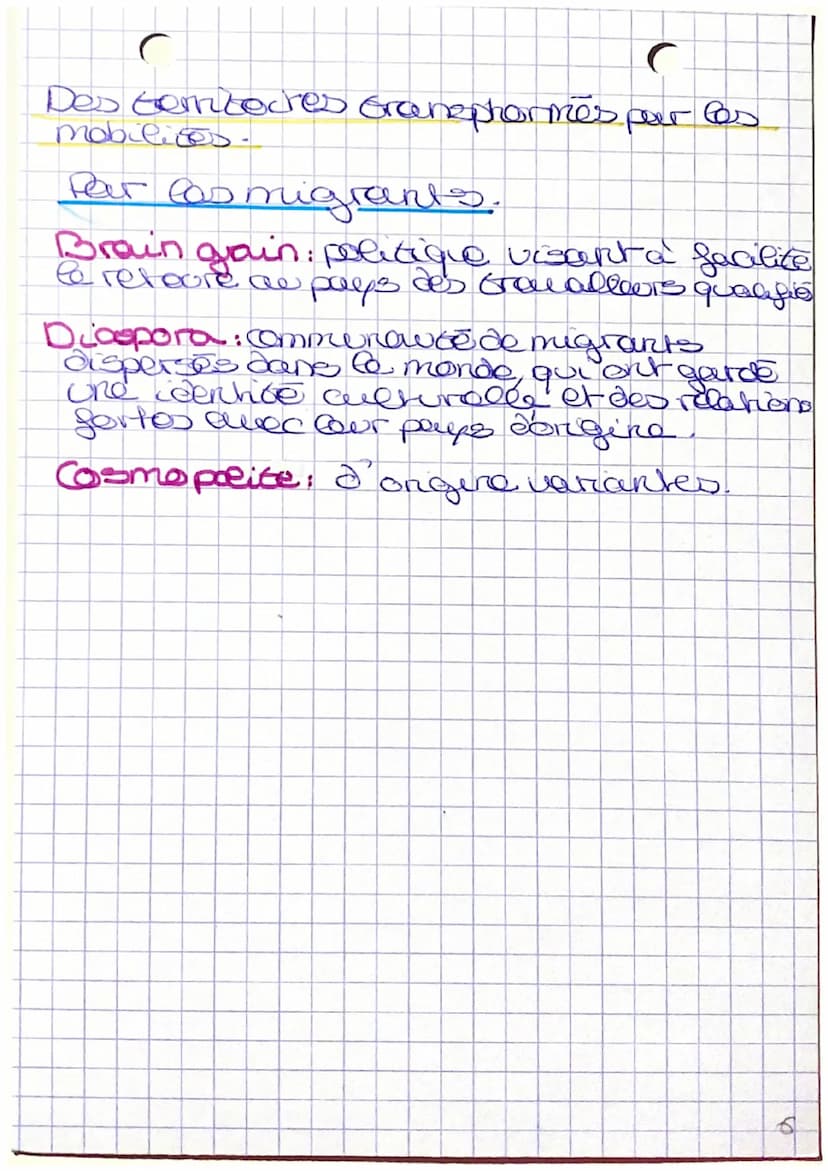 Des territoires transphormés par les
mobilités.
Par les migrants.
Brain gain : politique visant à facilité
le retour au pays des travailleurs qualifié
Diaspora : communauté de migrants
dispersés dans le monde, qui ont gardé
une identité culturelle et des relations
fortes avec leur pays d'origine.
Cosmopolite : d'origine variantes.
5